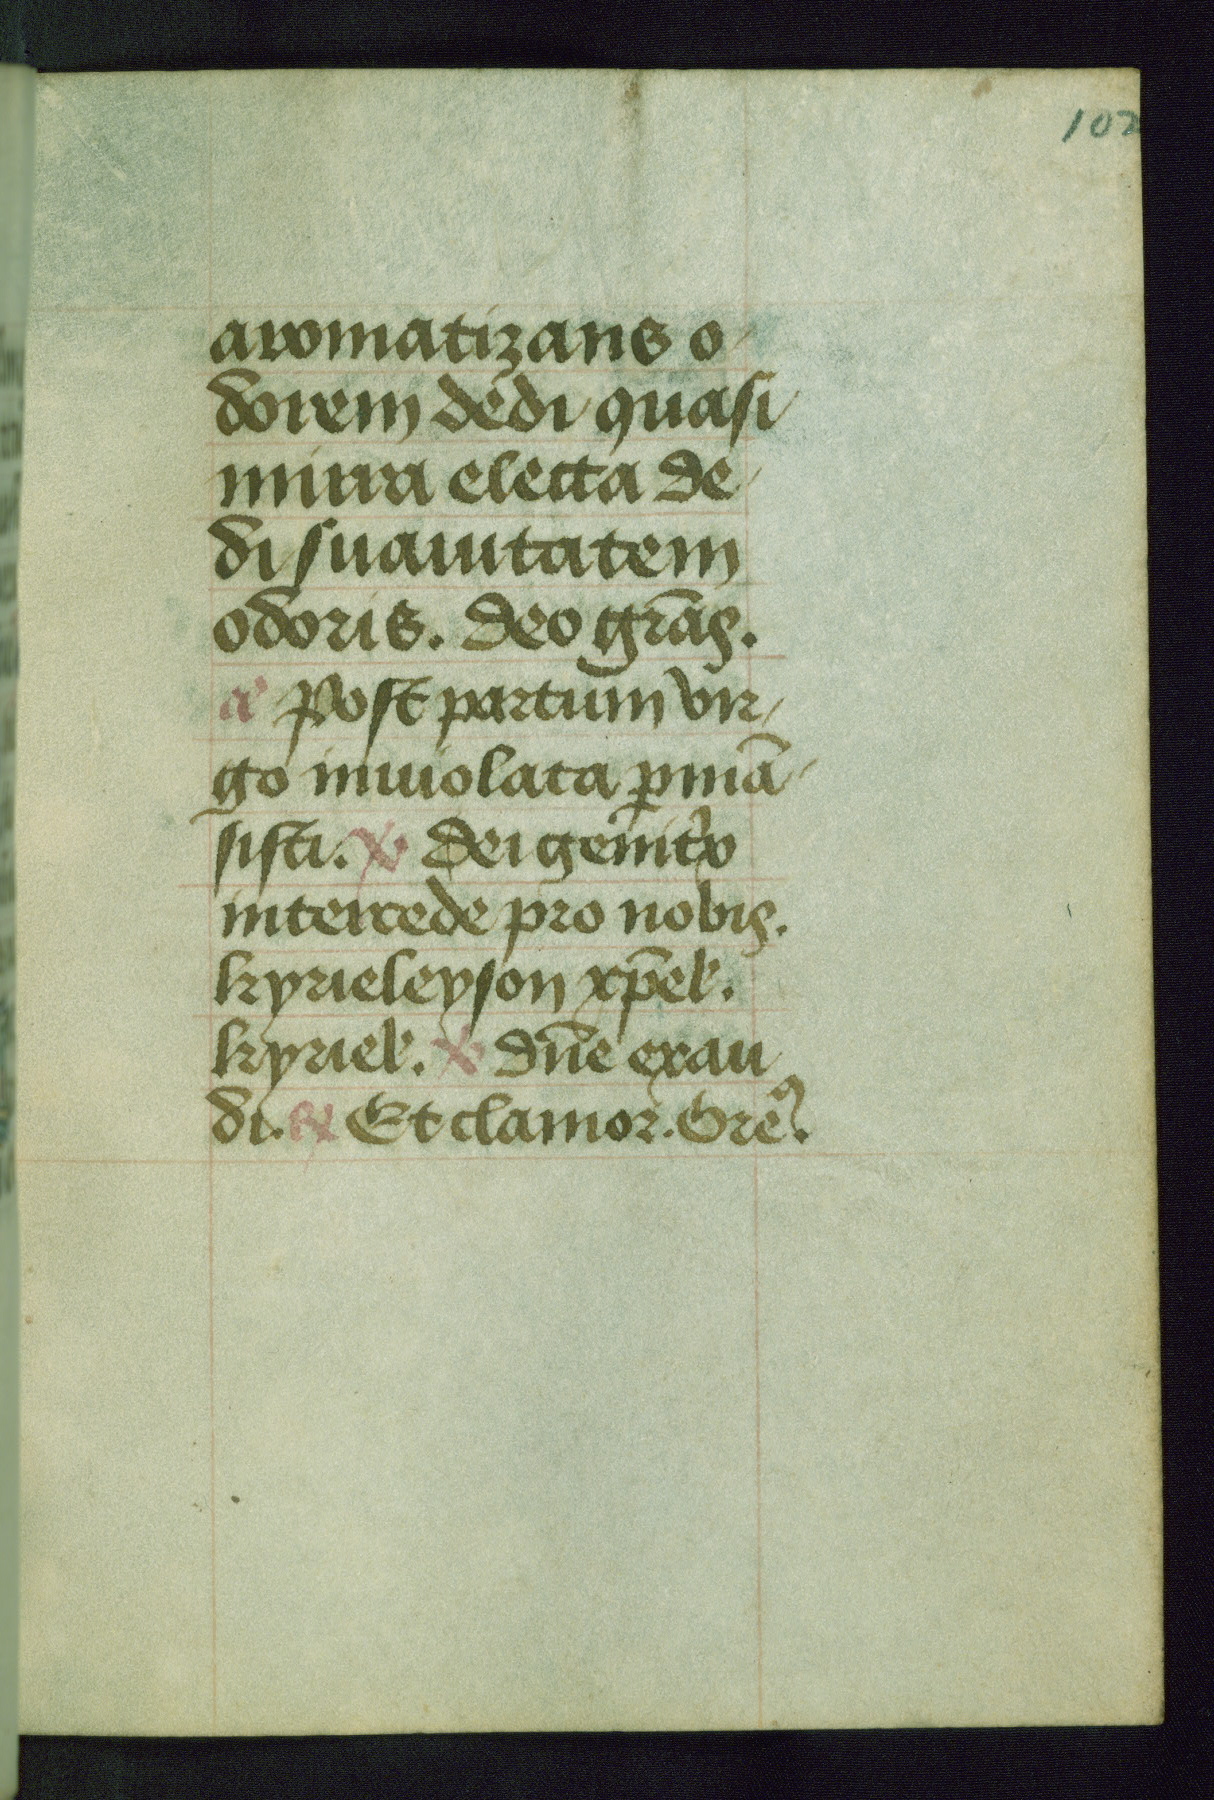 102
aromatizans o-
dorem dedi quasi
mirra electa de-
di suauitatem
odoris. Deo grãs.
a' Post partum vir-
go inuiolata ꝑmã-
sisti. ℣ Dei genitͥx
intercede pro nobis.
kyrieleyson xp̃el'.
kyriel'. ℣ Dñe exau
di. ℟ Et clamor. Orẽꝰ.